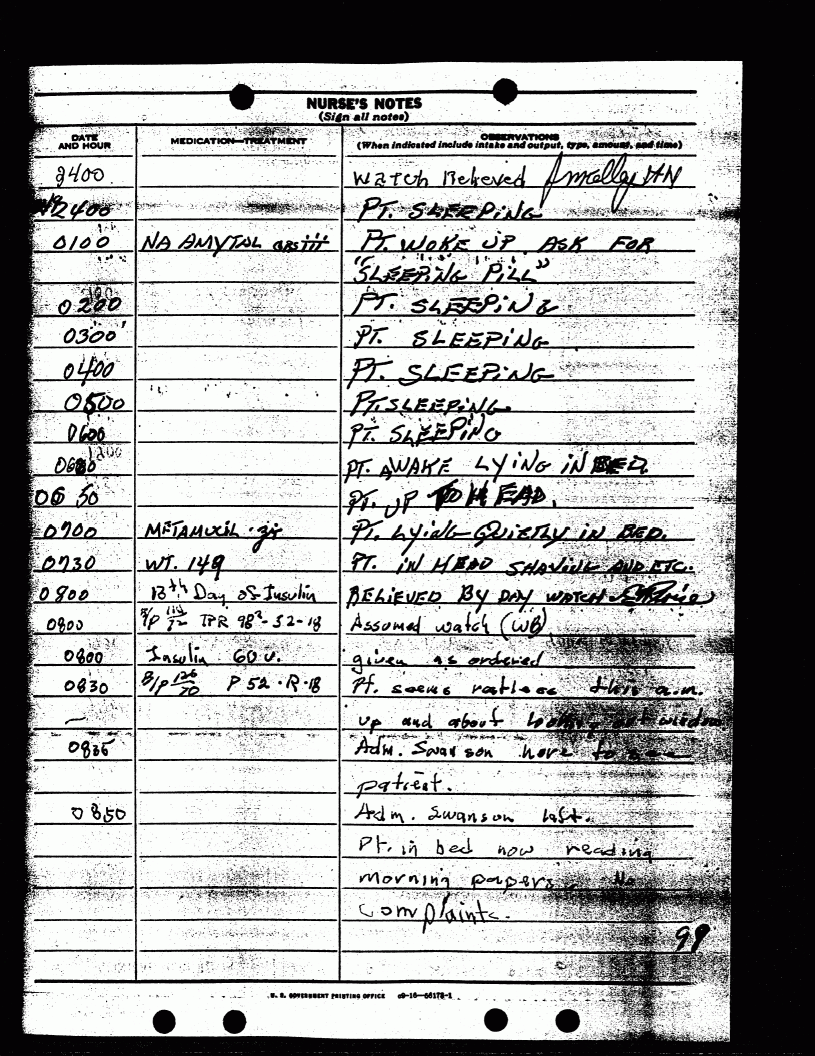 NURSE'S NOTES
(Sign all notes)
DATE AND HOUR MEDICATION—TREATMENT OBSERVATIONS (When indicated include intake and output, type, amount, and time)
2400 Watch Relieved HN
2400 PT. SLEEPING
0100 NA AMYTAL grs iii PT. WOKE UP ASK FOR
"SLEEPING PILL"
0200 PT. SLEEPING
0300 PT. SLEEPING
0400 PT. SLEEPING
0500 PT. SLEEPING
0600 PT. SLEEPING
PT. AWAKE LYING IN BED.
0630 PT. UP TO HEAD.
0700 METAMUCIL PT. LYING QUIETLY IN BED.
0730 WT. 149 PT. IN HEAD SHAVING AND ETC.
0800 13th Day of Insulin RELIEVED BY DAY WATCH
0800 B/P TPR 98²-52-18 Assumed watch (WB)
0800 Insulin 60 u. given as ordered
0830 B/P 126/70 P 52 · R · 18 Pt. seems restless this a.m.
up and about looking out window
0835 Adm. Swanson here to see
patient.
0850 Adm. Swanson left.
Pt. in bed now reading
morning papers. No
complaints.
99
U. S. GOVERNMENT PRINTING OFFICE c9—16—66178-1